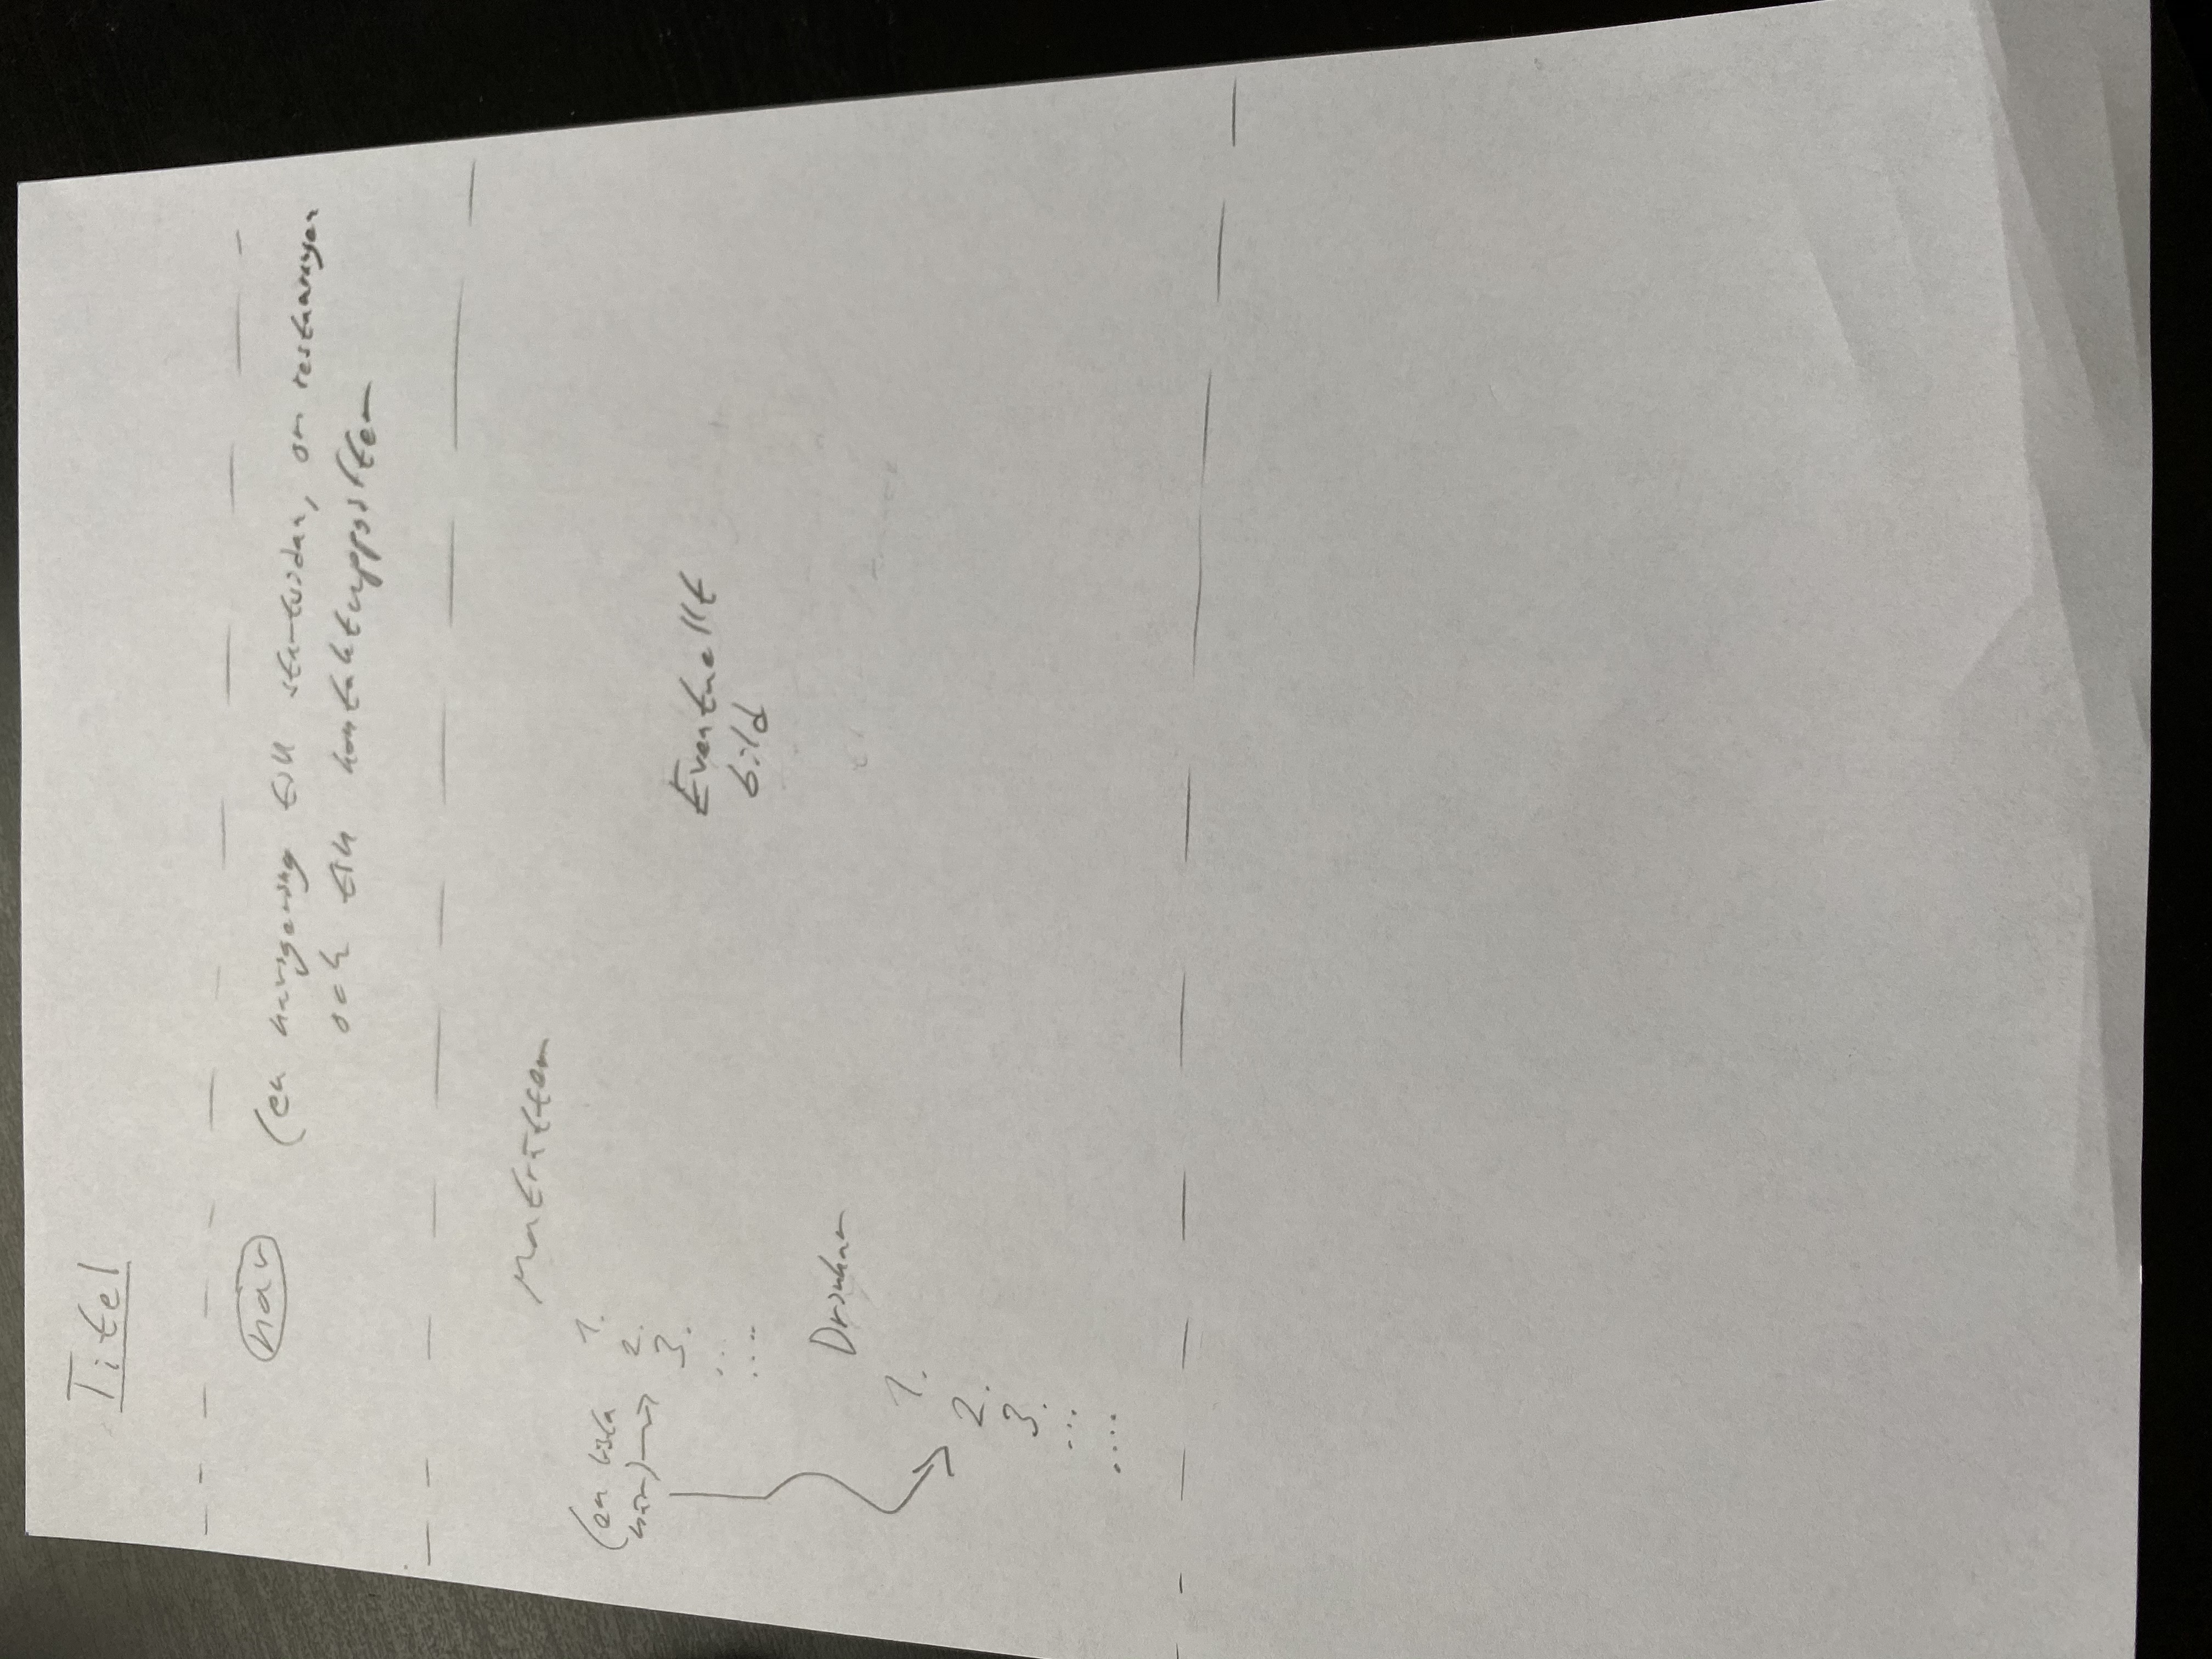 Titel
nav (en navigering till startsidan, om restaurangen
och till kontaktuppgifter
Maträtter
(en lista
här)
1.
2.
3.
...
....
Eventuellt
bild
Drinkar
1.
2.
3.
...
....